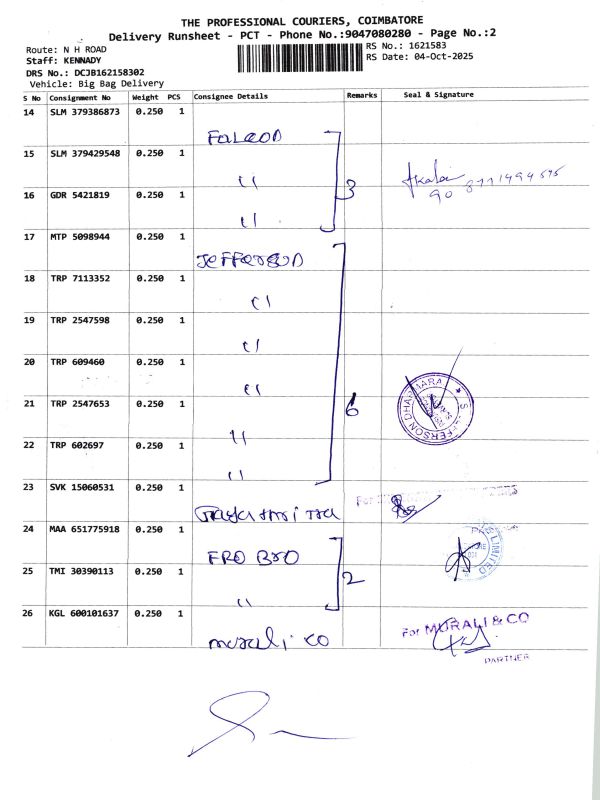 THE PROFESSIONAL COURIERS, COIMBATORE
Delivery Runsheet - PCT - Phone No.:9047080280 - Page No.:2
Route: N H ROAD
RS No.: 1621583
Staff: KENNADY
RS Date: 04-Oct-2025
DRS No.: DCJB162158302
Vehicle: Big Bag Delivery
S No Consignment No Weight PCS Consignee Details Remarks Seal & Signature
14 SLM 379386873 0.250 1
Falcon
15 SLM 379429548 0.250 1
" 3
16 GDR 5421819 0.250 1
"
17 MTP 5098944 0.250 1
Jefferson
18 TRP 7113352 0.250 1
"
19 TRP 2547598 0.250 1
"
20 TRP 609460 0.250 1
"
21 TRP 2547653 0.250 1
" 6
22 TRP 602697 0.250 1
"
23 SVK 15060531 0.250 1
For
24 MAA 651775918 0.250 1
FRO BRO
LIMITED
25 TMI 30390113 0.250 1
" 2
26 KGL 600101637 0.250 1
murali co For MURALI & CO
PARTNER